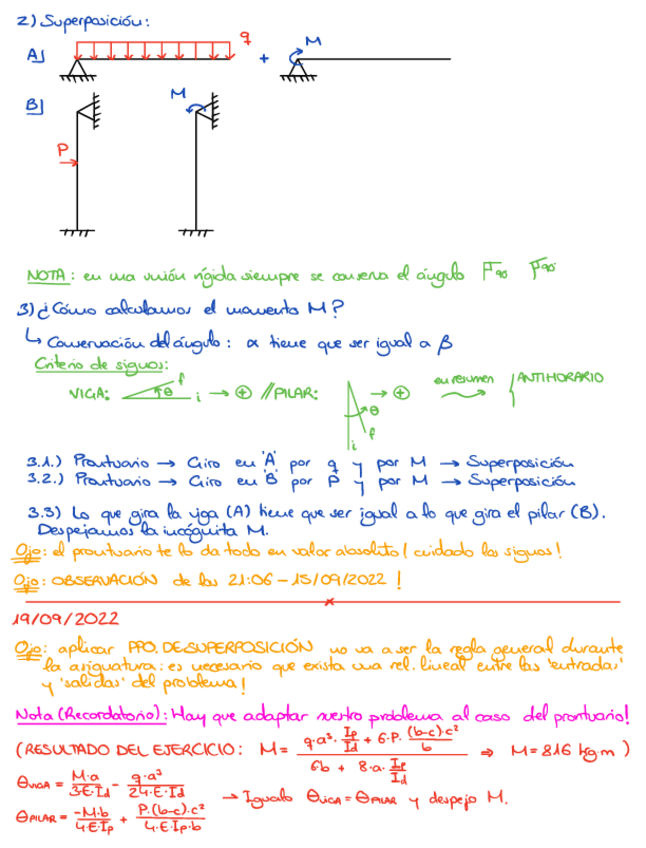 2) Superposición:
A) q + M
B) M
P
NOTA: en una unión rígida siempre se conserva el ángulo 90 90°
3) ¿Cómo calculamos el momento M?
↳ Conservación del ángulo: α tiene que ser igual a β
Criterio de signos:
VIGA: θ f i → ⊕ // PILAR: θ i f → ⊕ en resumen { ANTIHORARIO
3.1.) Prontuario → Giro en 'A' por q y por M → Superposición
3.2.) Prontuario → Giro en 'B' por P y por M → Superposición
3.3) Lo que gira la viga (A) tiene que ser igual a lo que gira el pilar (B).
Despejamos la incógnita M.
Ojo: el prontuario te lo da todo en valor absoluto ¡cuidado los signos!
Ojo: OBSERVACIÓN de las 21:06 - 15/09/2022 !
19/09/2022
Ojo: aplicar PPO. DE SUPERPOSICIÓN no va a ser la regla general durante
la asignatura: es necesario que exista una rel. lineal entre las 'entradas'
y 'salidas' del problema!
Nota (Recordatorio): Hay que adaptar nuestro problema al caso del prontuario!
(RESULTADO DEL EJERCICIO: M = (q·a³·Ip/Id + 6·P·(b-c)·c²/b) / (6b + 8·a·Ip/Id) ⇒ M = 816 kg·m)
θVIGA = M·a/3·E·Id - q·a³/24·E·Id
→ Igualo θVIGA = θPILAR y despejo M.
θPILAR = -M·b/4·E·Ip + P·(b-c)·c²/4·E·Ip·b